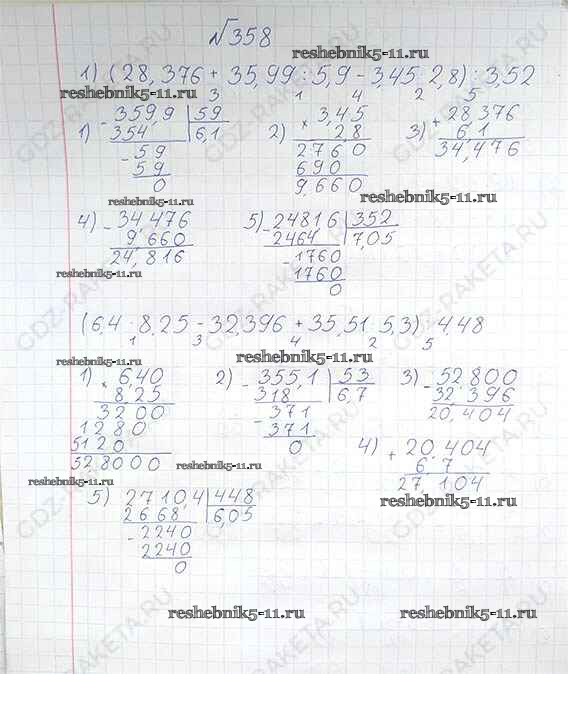 №358
reshebnik5-11.ru
1) (28,376 + 35,99 : 5,9 - 3,45 · 2,8) : 3,52
reshebnik5-11.ru 3 1 4 2 5
1) - 359,9 | 59
354 6,1
- 59
59
0
2) × 3,45
2,8
2760
690
9,660
3) + 28,376
6,1
34,476
reshebnik5-11.ru
reshebnik5-11.ru
4) - 34,476
9,660
24,816
reshebnik5-11.ru
5) - 2481,6 | 352
2464 7,05
- 1760
1760
0
(6,4 · 8,25 - 32,396 + 35,51 : 5,3) : 4,48
1 3 4 2 5
reshebnik5-11.ru
reshebnik5-11.ru
1) × 6,40
8,25
3200
1280
5120
528000
2) - 355,1 | 53
318 6,7
- 371
371
0
3) - 52,800
32,396
20,404
4) + 20,404
6,7
27,104
reshebnik5-11.ru
reshebnik5-11.ru
reshebnik5-11.ru
5) 2710,4 | 448
2668 6,05
- 2240
2240
0
reshebnik5-11.ru
reshebnik5-11.ru
GDZ-RAKETA.RU